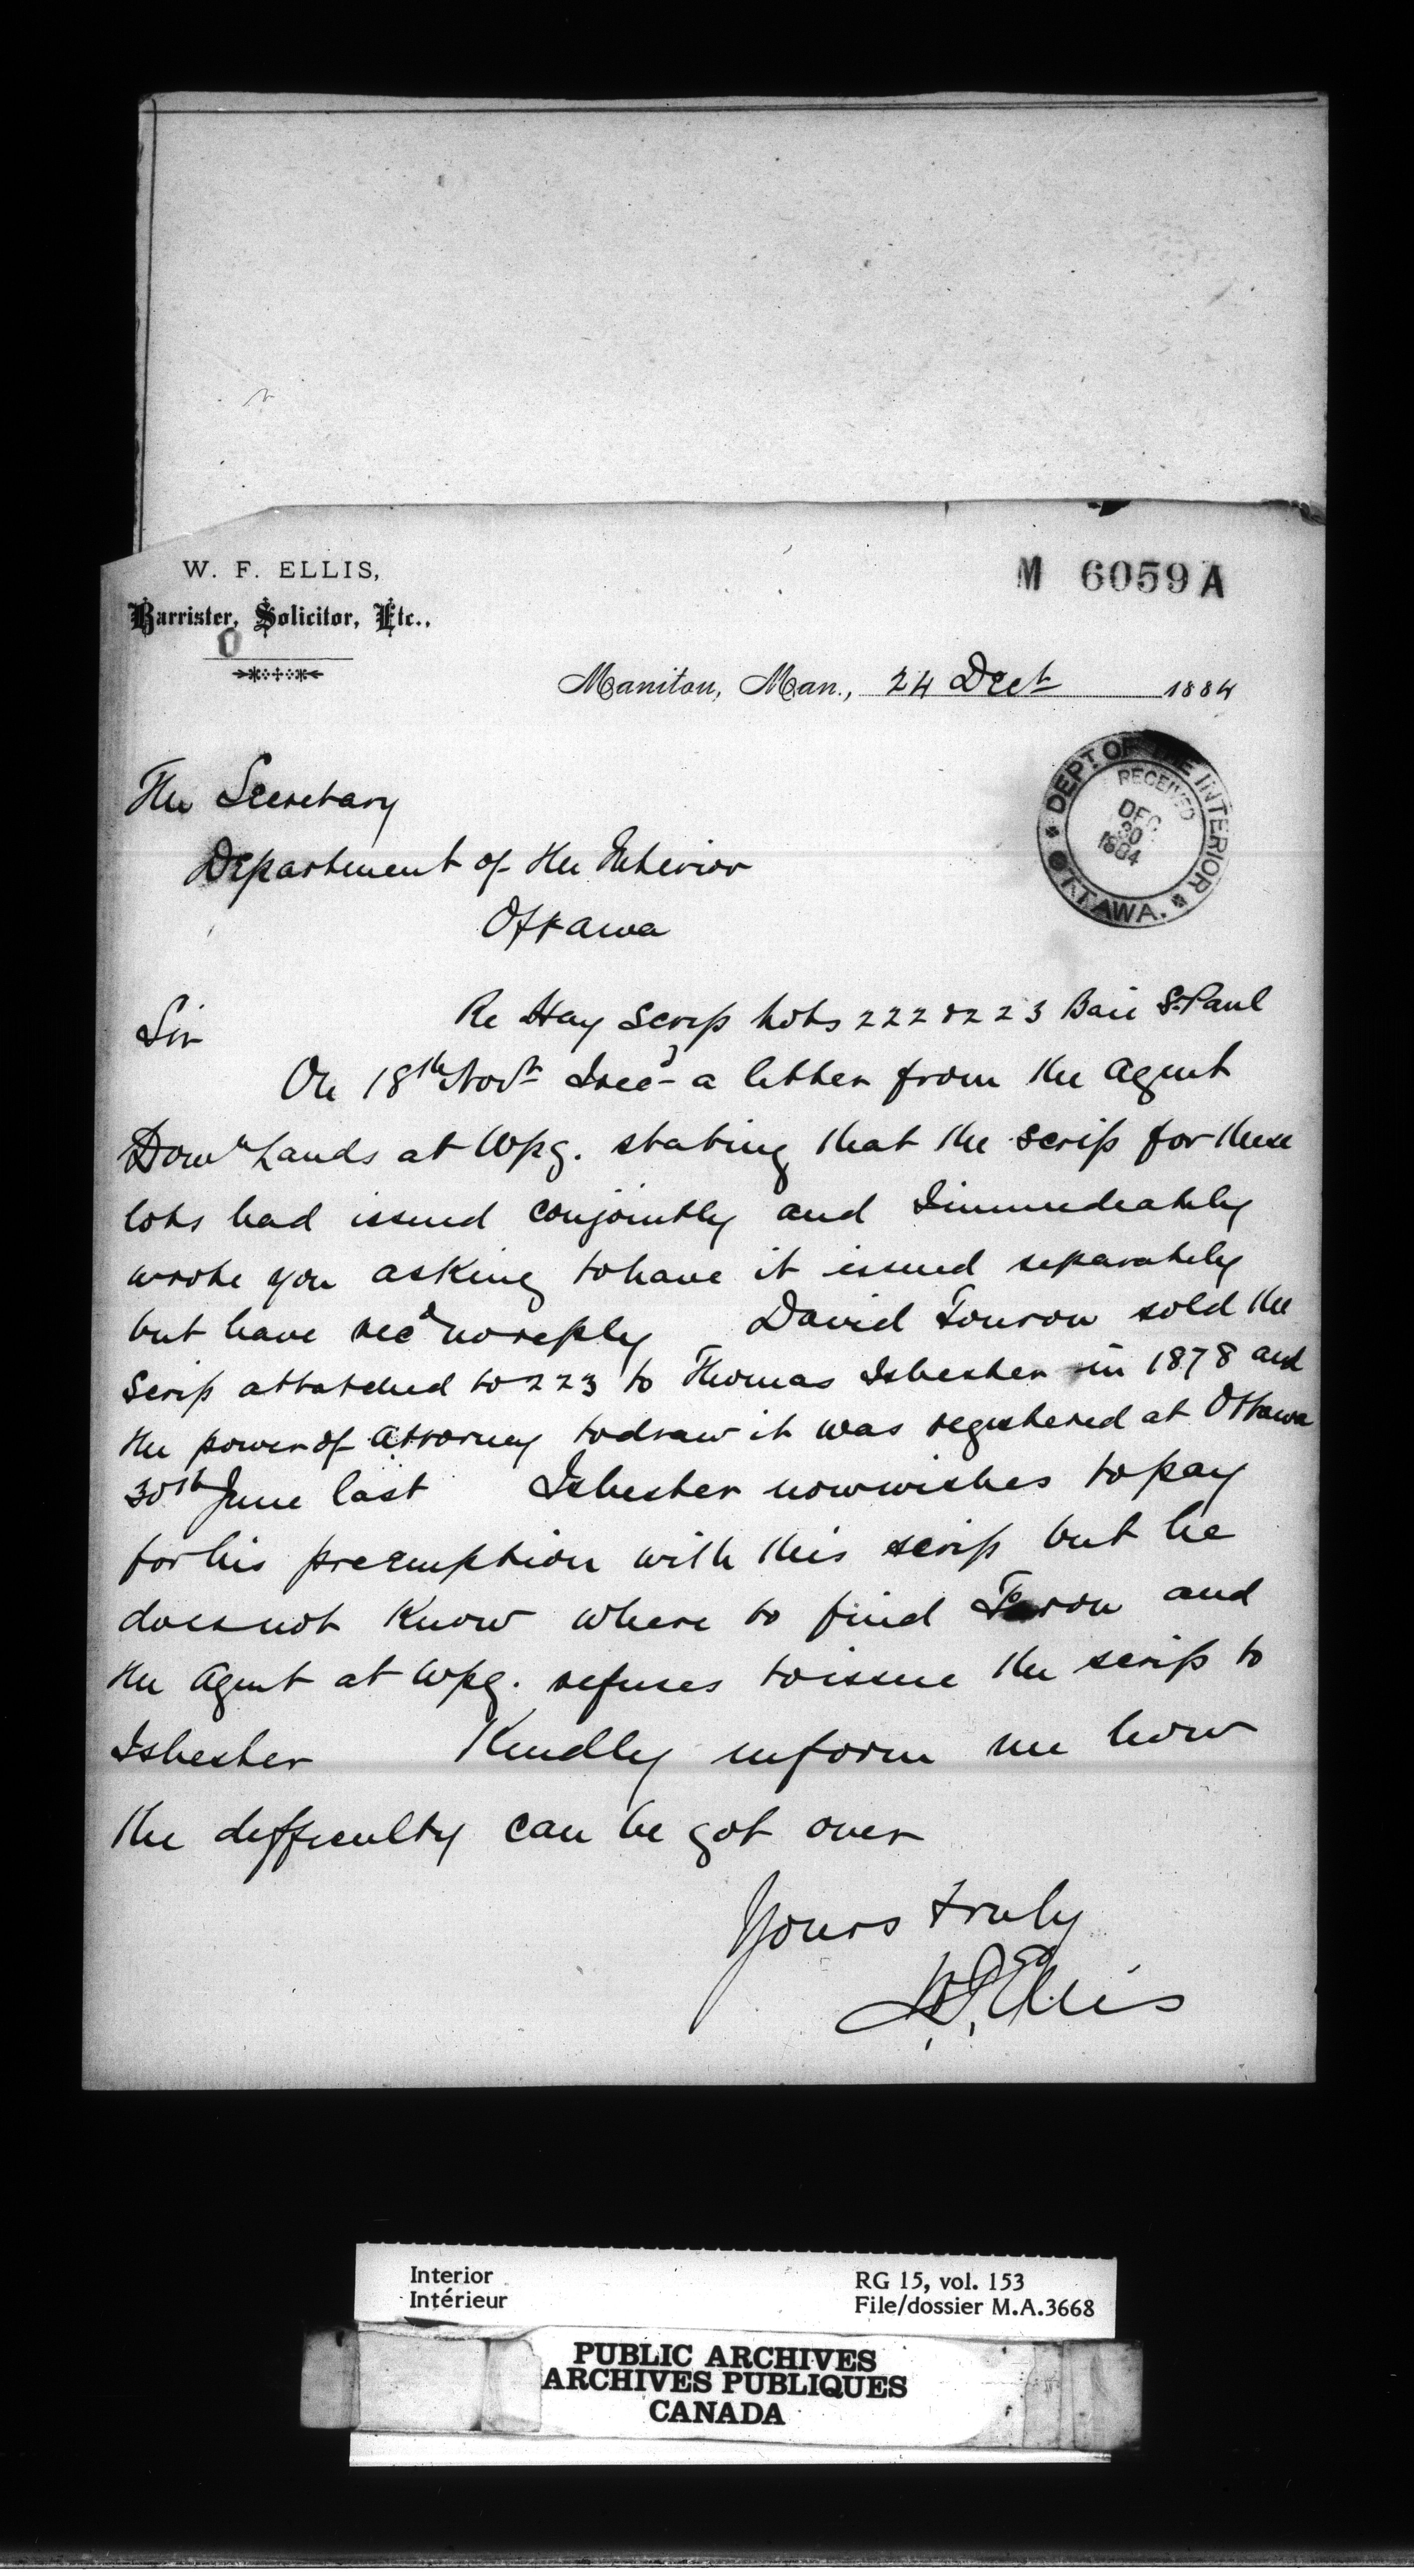 W. F. ELLIS,
Barrister, Solicitor, Etc.,
M 6059 A
0
Manitou, Man., 24 Dect 1884
DEPT. OF THE INTERIOR
RECEIVED
DEC
30
1884
OTTAWA.
The Secretary
Department of the Interior
Ottawa
Sir
Re Hay Scrip Lots 222 & 223 Baie St. Paul
On 18th Novr I recd a letter from the Agent
Domn Lands at Wpg. stating that the scrip for these
lots had issued conjointly and I immediately
wrote you asking to have it issued separately
but have recd no reply David Touron sold the
Scrip attatched to 223 to Thomas Isbester in 1878 and
the power of Attorney to draw it was registered at Ottawa
30th June last Isbester now wishes to pay
for his preemption with this scrip but he
does not know where to find and
the Agent at Wpg. refuses to issue the scrip to
Isbester Kindly inform me how
the difficulty can be got over
Yours truly
W.F. Ellis
Interior
Intérieur
RG 15, vol. 153
File/dossier M.A.3668
PUBLIC ARCHIVES
ARCHIVES PUBLIQUES
CANADA